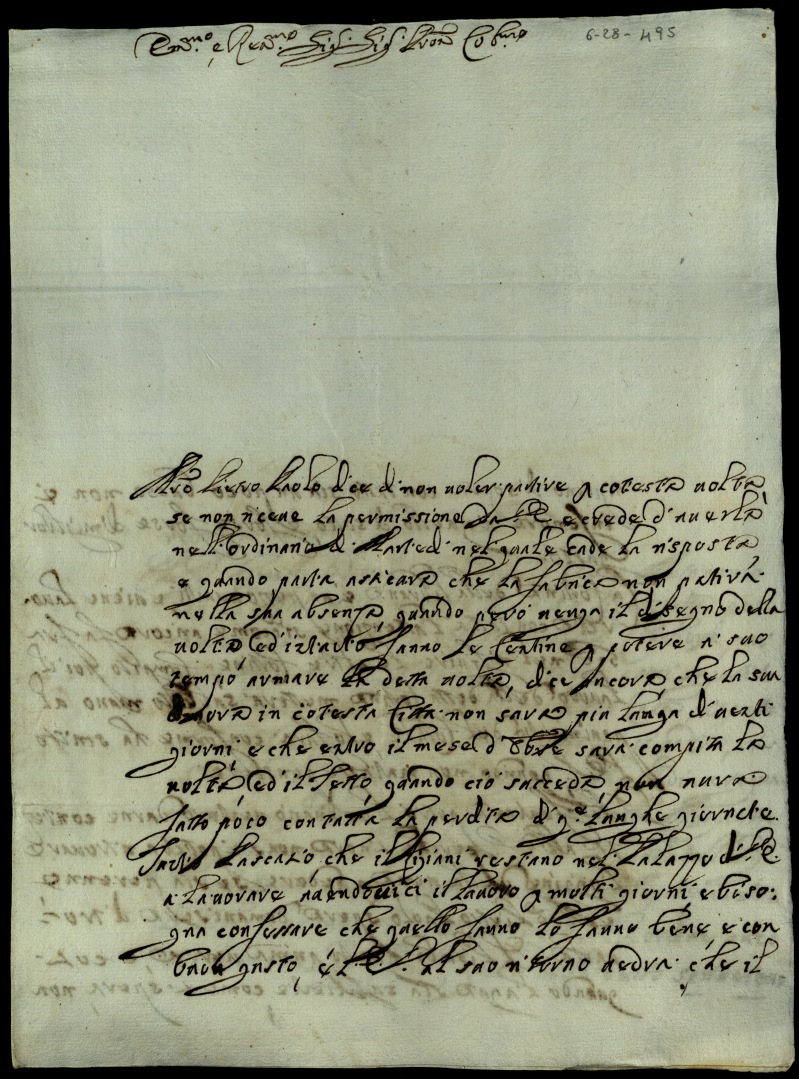 Em.mo e Rev.mo Sig.r Sig.r Pron Col.mo
6-28-495
M.ro Pietro Paolo dice di non uoler partire p cotesta uolta
se non riceue la permissione da V.E. e crede d'auerla
nell'ordinario di Martedi nel quale cade la risposta
e quando parta asicura che la fabrica non patirà
nella sua absenza, quando però uenga il disegno della
uolta, ed'intanto fanno le Centine p potere a suo
tempo armare la detta uolta, dice ancora che la sua
dimora in cotesta Città non sara più lunga di uenti
giorni e che entro il mese d'8bre sara compita la
uolta, ed il Tetto, quando ciò succeda non aura
fatto poco con tutta la perdita di q.e lunghe giornate.
che il restano nel Palazzo di V.E.
a lauorare auendouici il lauoro p molti giorni e biso:
gna confessare che quello fanno lo fanno bene e con
buon gusto, e V.E. al suo ritorno uedra che il